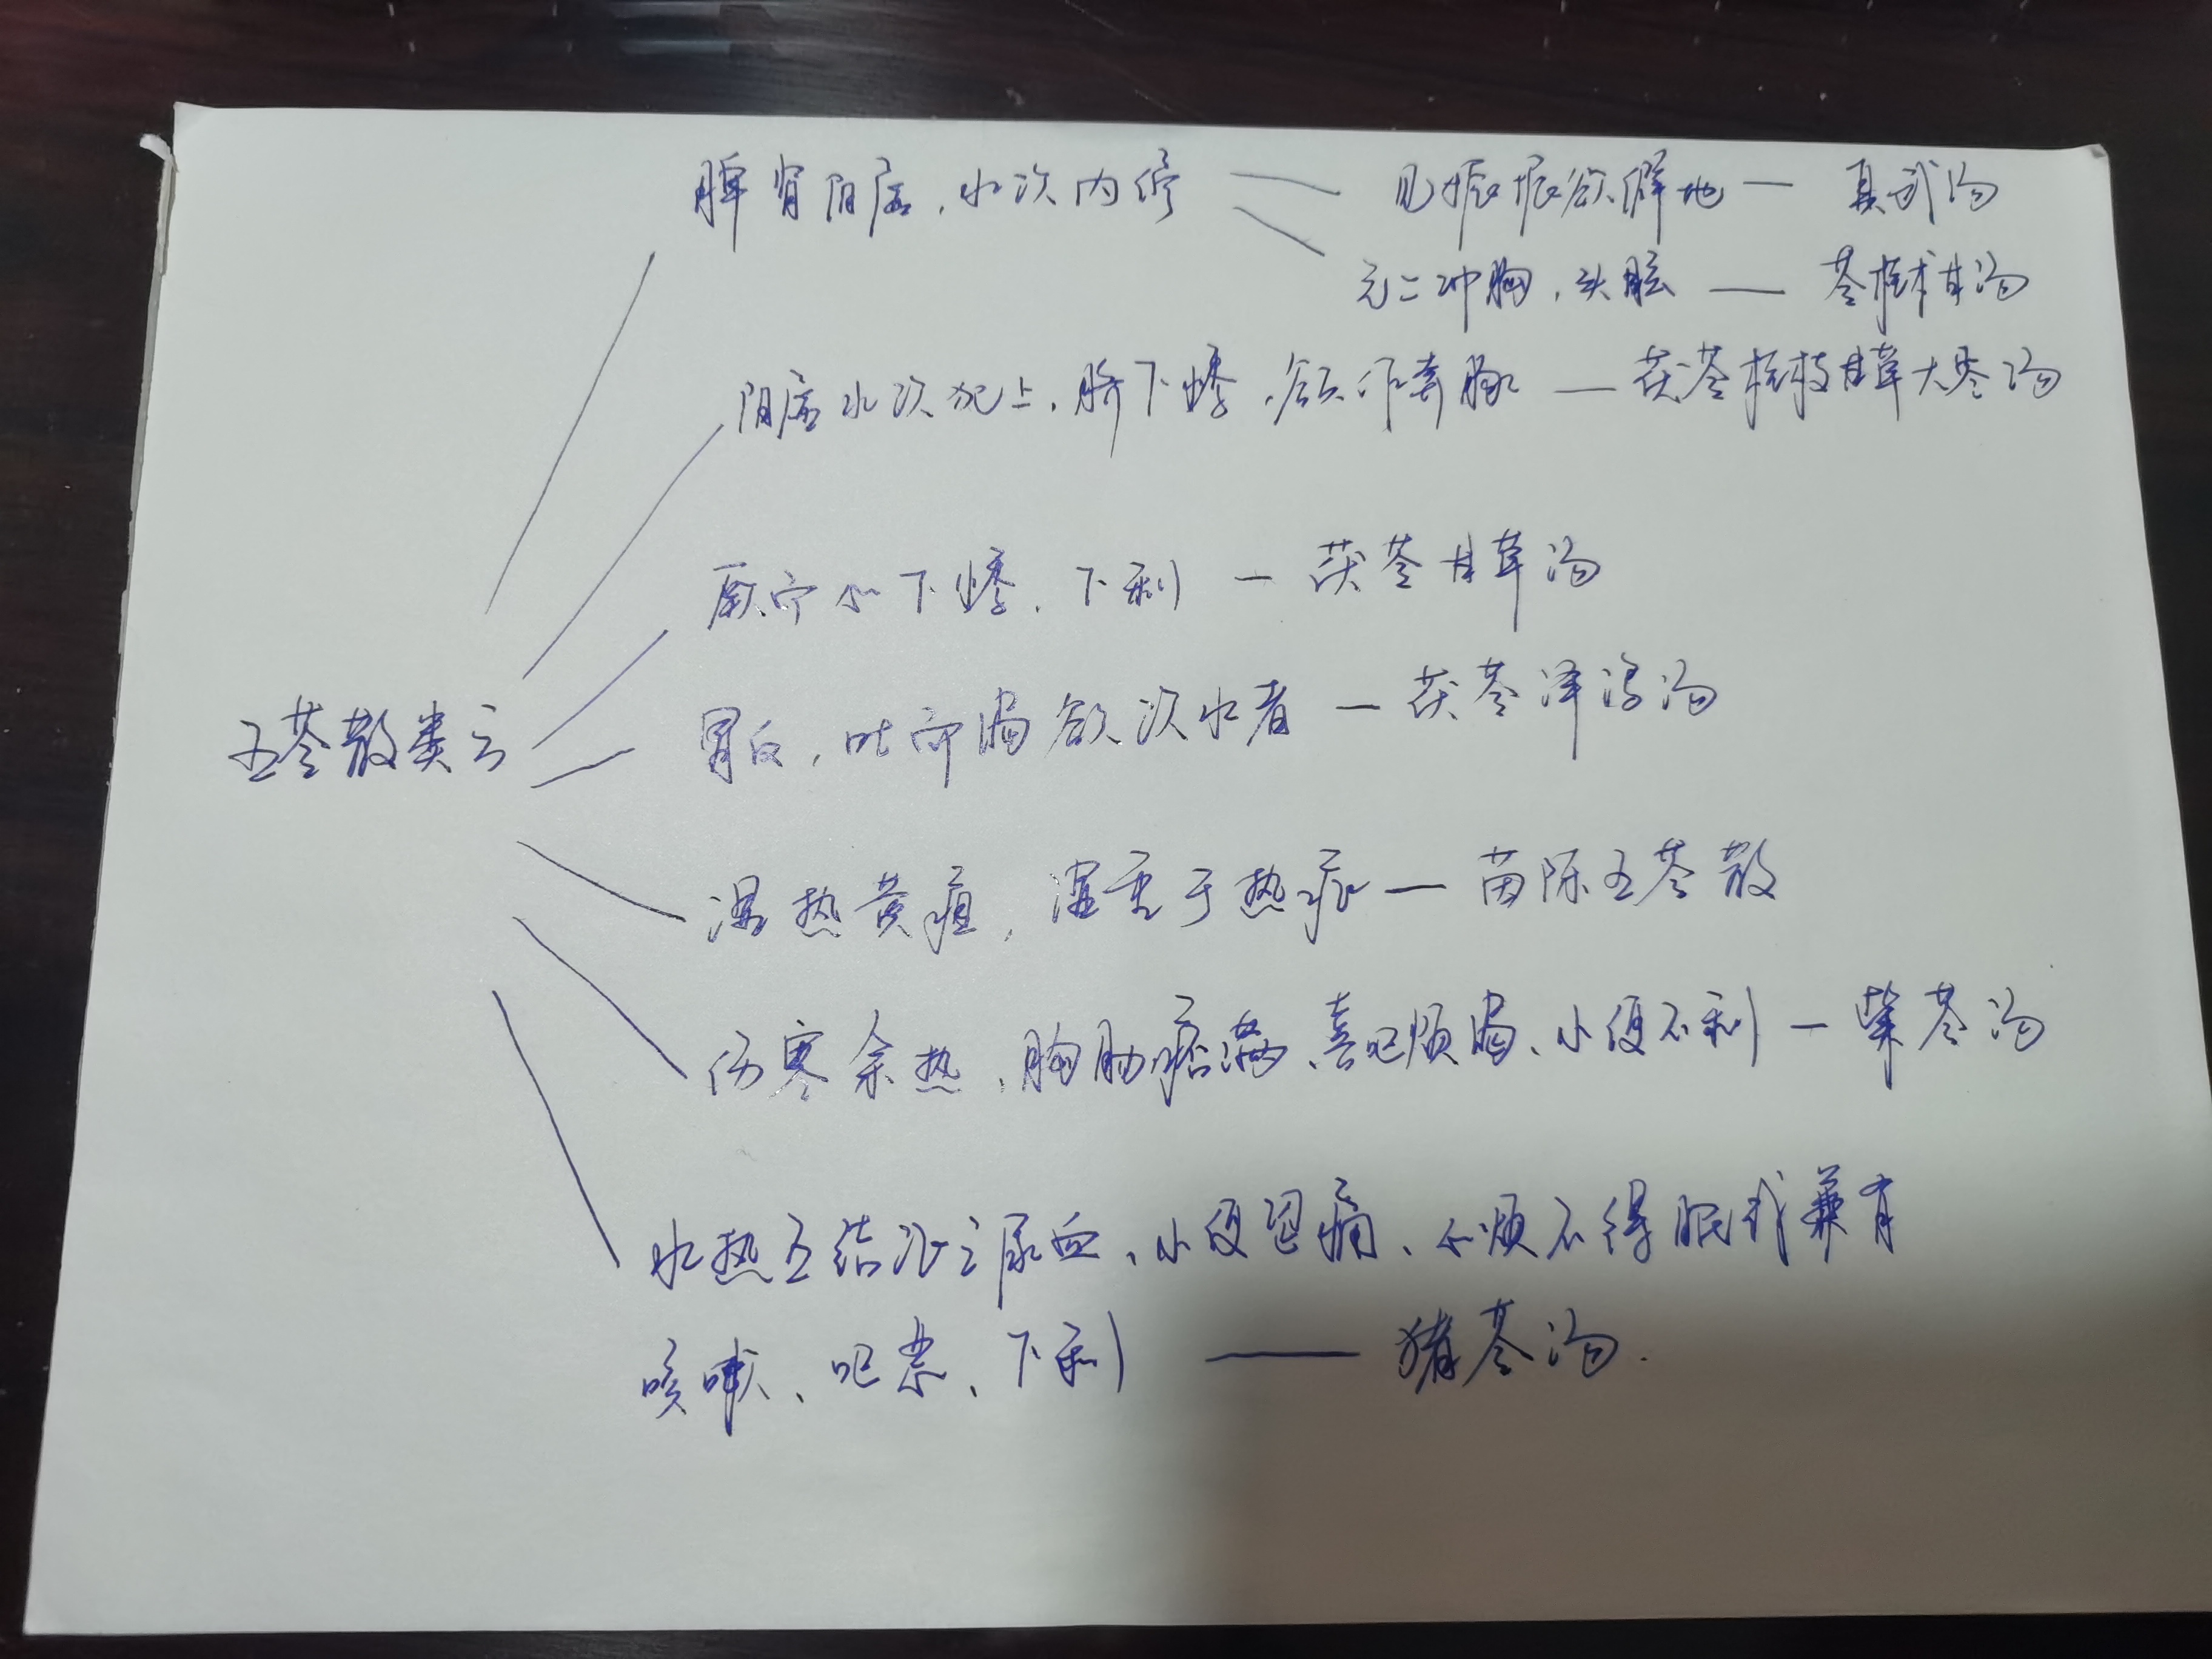 脾肾阳虚，水饮内停
见振振欲僻地 — 真武汤
气上冲胸，头眩 — 苓桂术甘汤
阳虚水饮犯上，脐下悸，欲作奔豚 — 茯苓桂枝甘草大枣汤
厥而心下悸，下利 — 茯苓甘草汤
五苓散类方
胃反，吐而渴欲饮水者 — 茯苓泽泻汤
湿热黄疸，湿重于热症 — 茵陈五苓散
伤寒余热，胸胁痞满、喜呕烦渴、小便不利 — 柴苓汤
水热互结证之尿血、小便涩痛、心烦不得眠或兼有
咳嗽、呕恶、下利 — 猪苓汤.